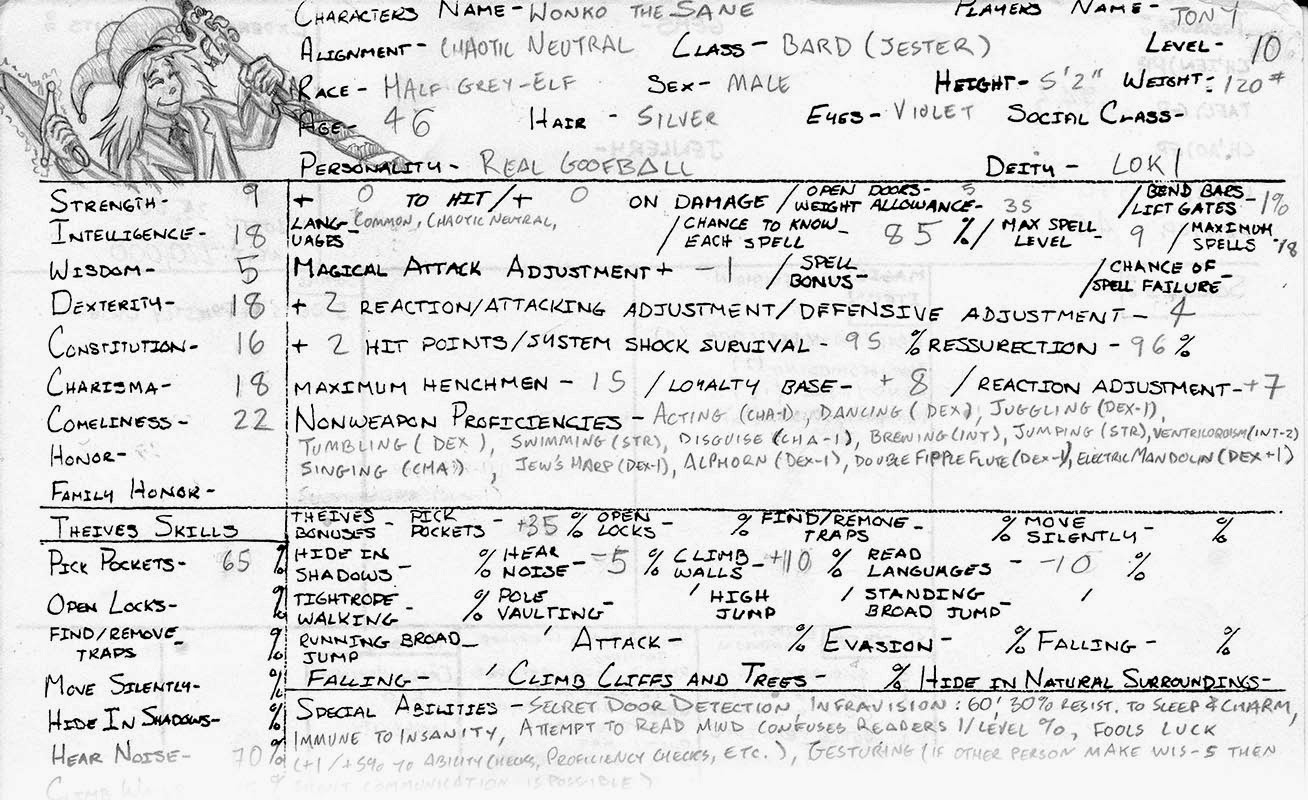 CHARACTERS NAME- WONKO THE SANE PLAYERS NAME- TONY
ALIGNMENT- CHAOTIC NEUTRAL CLASS- BARD (JESTER) LEVEL- 10
RACE- HALF GREY-ELF SEX- MALE HEIGHT- 5'2" WEIGHT- 120#
AGE- 46 HAIR- SILVER EYES- VIOLET SOCIAL CLASS-
PERSONALITY- REAL GOOFBALL DEITY- LOKI
STRENGTH- 9 + 0 TO HIT/+ 0 ON DAMAGE /OPEN DOORS- 5 WEIGHT ALLOWANCE- 35 /BEND BARS LIFT GATES- 1%
INTELLIGENCE- 18 LANGUAGES- COMMON, CHAOTIC NEUTRAL, /CHANCE TO KNOW EACH SPELL- 85 %/MAX SPELL LEVEL- 9 /MAXIMUM SPELLS- 18
WISDOM- 5 MAGICAL ATTACK ADJUSTMENT + -1 /SPELL BONUS- /CHANCE OF SPELL FAILURE-
DEXTERITY- 18 + 2 REACTION/ATTACKING ADJUSTMENT/DEFENSIVE ADJUSTMENT- 4
CONSTITUTION- 16 + 2 HIT POINTS/SYSTEM SHOCK SURVIVAL- 95 % RESSURECTION- 96%
CHARISMA- 18 MAXIMUM HENCHMEN- 15 /LOYALTY BASE- +8 /REACTION ADJUSTMENT- +7
COMELINESS- 22 NONWEAPON PROFICIENCIES- ACTING (CHA-1), DANCING (DEX), JUGGLING (DEX-1),
TUMBLING (DEX), SWIMMING (STR), DISGUISE (CHA-1), BREWING (INT), JUMPING (STR), VENTRILOQUISM (INT-2)
HONOR- SINGING (CHA), JEW'S HARP (DEX-1), ALPHORN (DEX-1), DOUBLE FIPPLE FLUTE (DEX-1), ELECTRIC MANDOLIN (DEX+1)
FAMILY HONOR-
THEIVES SKILLS THEIVES BONUSES- PICK POCKETS- +35 % OPEN LOCKS- % FIND/REMOVE TRAPS- % MOVE SILENTLY- %
PICK POCKETS- 65 % HIDE IN SHADOWS- % HEAR NOISE- -5 % CLIMB WALLS- +10 % READ LANGUAGES- -10 %
OPEN LOCKS- % TIGHTROPE WALKING- % POLE VAULTING- ' HIGH JUMP- / STANDING BROAD JUMP- '
FIND/REMOVE TRAPS- % RUNNING BROAD JUMP- ' ATTACK- % EVASION- % FALLING- %
MOVE SILENTLY- % FALLING- ' CLIMB CLIFFS AND TREES- % HIDE IN NATURAL SURROUNDINGS-
HIDE IN SHADOWS- % SPECIAL ABILITIES- SECRET DOOR DETECTION, INFRAVISION: 60', 30% RESIST. TO SLEEP & CHARM,
IMMUNE TO INSANITY, ATTEMPT TO READ MIND CONFUSES READERS 1/LEVEL %, FOOLS LUCK
HEAR NOISE- 70% (+1/+5% TO ABILITY CHECKS, PROFICIENCY CHECKS, ETC.), GESTURING (IF OTHER PERSON MAKE WIS-5 THEN
CLIMB % SILENT COMMUNICATION IS POSSIBLE)